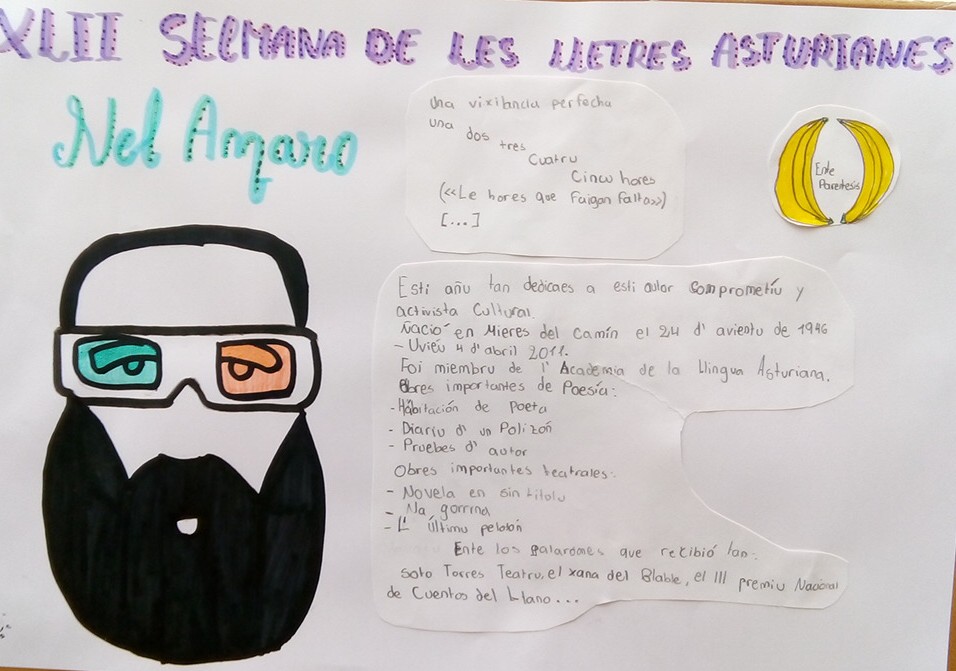 XLII SELMANA DE LES LLETRES ASTURIANES
Nel Amaro
Una vixilancia perfecha
una dos tres
Cuatru
Cinco hores
(«Le hores que faigan falta»)
[...]
Ente
Parentesis
Esti añu tan dedicaes a esti autor comprometíu y
activista Cultural.
Ñació en Mieres del Camín el 24 d' avientu de 1946
- Uviéu 4 d' abril 2011.
Foi miembru de l' Academia de la Llingua Asturiana.
Obres importantes de Poesía:
- Habitación de Poeta
- Diariu d' un Polizón
- Pruebes d' autor
Obres importantes teatrales:
- Novela en sin titolu
- Na gorrina
- L' Últimu pelotón
Ente los galardones que recibió tan:
Soto Torres Teatru, el xana del Blable, el III premiu Nacional
de Cuentos del Llano...